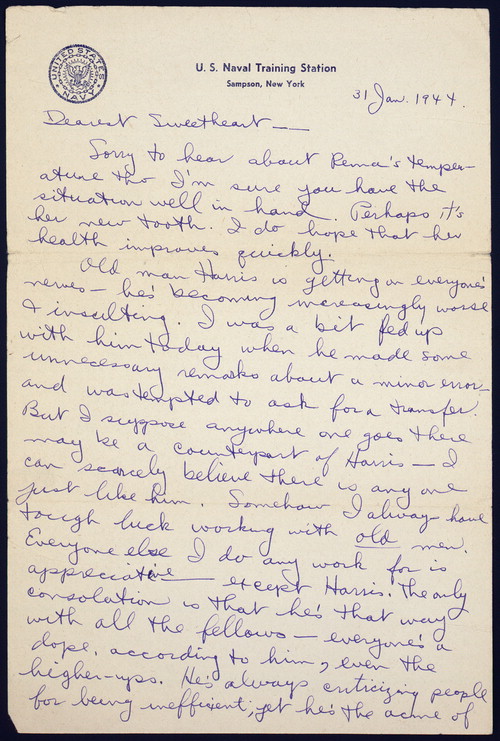 UNITED STATES NAVY
U. S. Naval Training Station
Sampson, New York
31 Jan. 1944.
Dearest Sweetheart —
Sorry to hear about Rema's temper-
ature tho I'm sure you have the
situation well in hand. Perhaps it's
her new tooth. I do hope that her
health improves quickly.
Old man Harris is getting on everyone's
nerves — he's becoming increasingly worse
& insulting. I was a bit fed up
with him today when he made some
unnecessary remarks about a minor error —
and was tempted to ask for a transfer.
But I suppose anywhere one goes there
may be a counterpart of Harris — I
can scarcely believe there is any one
just like him. Somehow I always have
tough luck working with old men.
Everyone else I do any work for is
appreciative — except Harris. The only
consolation is that he's that way
with all the fellows — everyone's a
dope, according to him, even the
higher-ups. He's always criticizing people
for being inefficient; yet he's the acme of